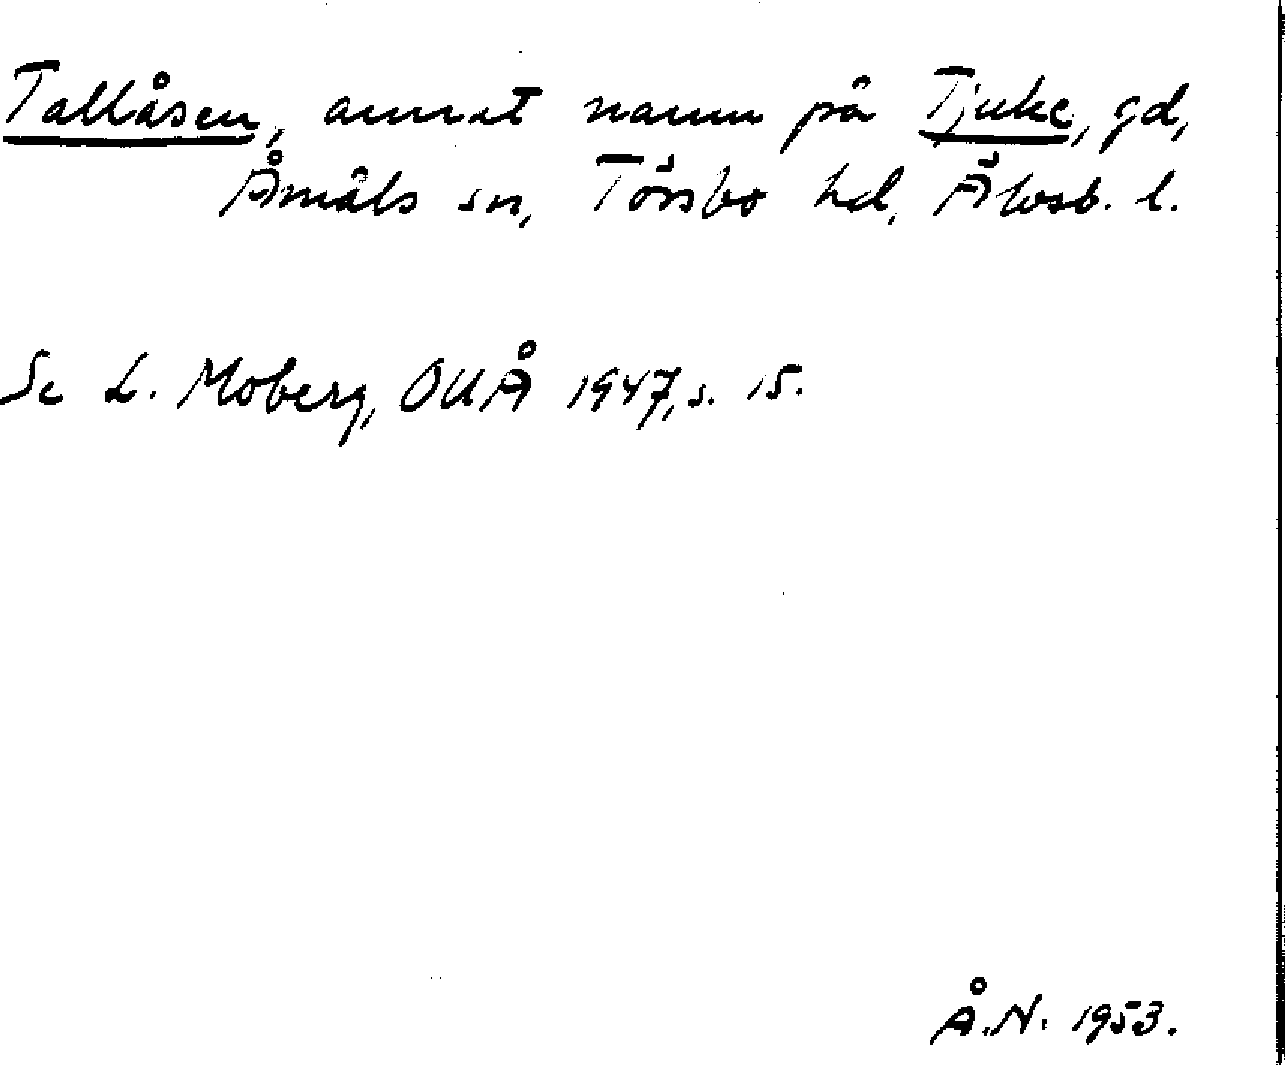 Tallåsen, annat namn på Tjuke, gd,
Åmåls sn, Tössbo hd, Älvsb. l.
Se L. Moberg, OUÅ 1947, s. 15.
Å.N. 1953.